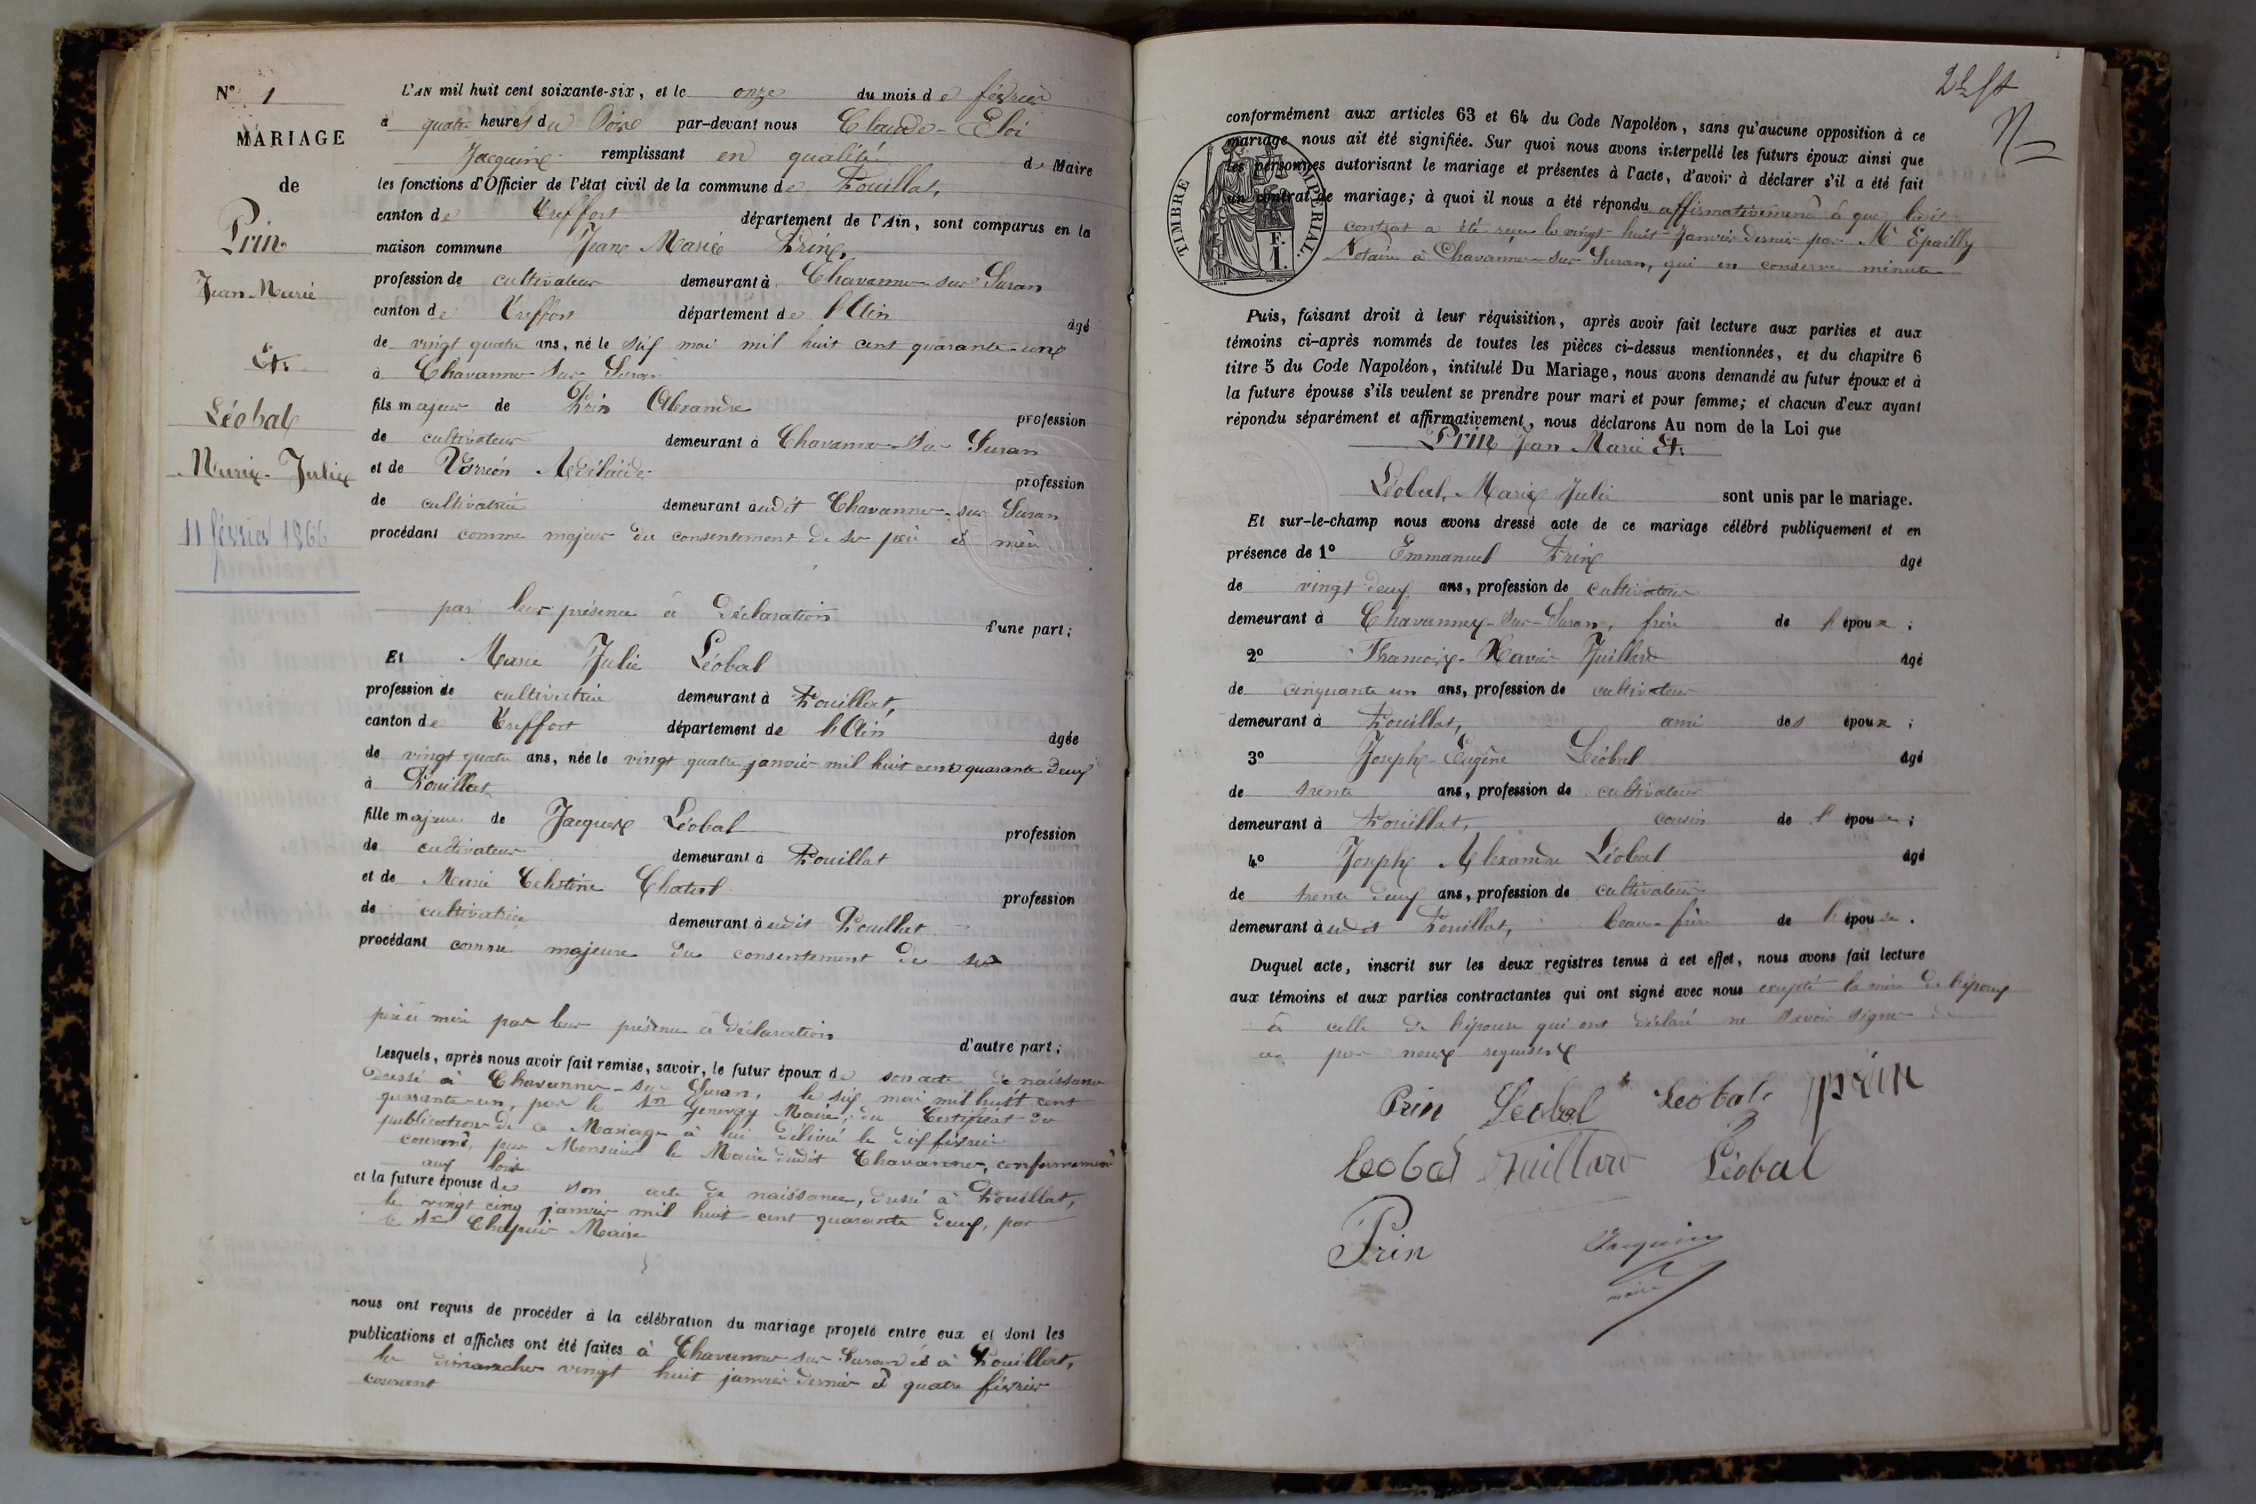 N° 1
MARIAGE
de
Prin
Jean Marie
Et
Léobal
Marie Julie
11 février 1866
L'AN mil huit cent soixante-six, et le onze du mois de février
à quatre heures du soir par-devant nous Claude-Eloi
Jacquin remplissant en qualité de Maire
les fonctions d'Officier de l'état civil de la commune de Pouillat,
canton de Treffort département de l'Ain, sont comparus en la
maison commune Jean Marie Prin,
profession de cultivateur demeurant à Chavannes-sur Suran
canton de Treffort département de l'Ain âgé
de vingt quatre ans, né le six mai mil huit cent quarante-un
à Chavannes-sur-Suran
fils majeur de Prin Alexandre profession
de cultivateur demeurant à Chavannes-sur-Suran
et de Adélaïde profession
de cultivatrice demeurant audit Chavannes-sur Suran
procédant comme majeur du consentement de ses père et mère
par leur présence et déclaration d'une part;
Et Marie Julie Léobal
profession de cultivatrice demeurant à Pouillat,
canton de Treffort département de l'Ain âgée
de vingt quatre ans, née le vingt quatre janvier mil huit cent quarante deux
à Pouillat
fille majeure de Jacques Léobal profession
de cultivateur demeurant à Pouillat
et de Marie Célestine profession
de cultivatrice demeurant audit Pouillat
procédant comme majeure du consentement de ses
père et mère par leur présence et déclaration d'autre part;
Lesquels, après nous avoir fait remise, savoir, le futur époux de son acte de naissance
dressé à Chavannes-sur Suran, le six mai mil huit cent
quarante-un, par le Sr Genevay Maire; du Certificat de
publication de ce Mariage à lui délivré le dix février
courant, par Monsieur le Maire dudit Chavannes, conformément
aux lois
et la future épouse de son acte de naissance, dressé à Pouillat,
le vingt cinq janvier mil huit cent quarante deux, par
le Sr Chapuis Maire
nous ont requis de procéder à la célébration du mariage projeté entre eux et dont les
publications et affiches ont été faites à Chavannes sur Suran et à Pouillat,
les dimanches vingt huit janvier dernier et quatre février
courant
conformément aux articles 63 et 64 du Code Napoléon, sans qu'aucune opposition à ce
mariage nous ait été signifiée. Sur quoi nous avons interpellé les futurs époux ainsi que
les personnes autorisant le mariage et présentes à l'acte, d'avoir à déclarer s'il a été fait
un contrat de mariage; à quoi il nous a été répondu affirmativement et que ledit
contrat a été reçu le vingt-huit Janvier dernier par Me Epailly
Notaire à Chavannes-sur Suran, qui en conserve minute
TIMBRE IMPÉRIAL.
F.
1.
Puis, faisant droit à leur réquisition, après avoir fait lecture aux parties et aux
témoins ci-après nommés de toutes les pièces ci-dessus mentionnées, et du chapitre 6
titre 5 du Code Napoléon, intitulé Du Mariage, nous avons demandé au futur époux et à
la future épouse s'ils veulent se prendre pour mari et pour femme; et chacun d'eux ayant
répondu séparément et affirmativement, nous déclarons Au nom de la Loi que
Prin Jean Marie Et
Léobal, Marie Julie sont unis par le mariage.
Et sur-le-champ nous avons dressé acte de ce mariage célébré publiquement et en
présence de 1° Emmanuel Prin âgé
de vingt deux ans, profession de cultivateur
demeurant à Chavannes-sur-Suran, frère de l'époux;
2° François-Xavier Juillard âgé
de cinquante un ans, profession de cultivateur
demeurant à Pouillat, ami des époux;
3° Joseph-Eugène Léobal âgé
de trente ans, profession de cultivateur
demeurant à Pouillat, cousin de l'épouse;
4° Joseph Alexandre Léobal âgé
de trente deux ans, profession de cultivateur
demeurant audit Pouillat, beau-frère de l'épouse.
Duquel acte, inscrit sur les deux registres tenus à cet effet, nous avons fait lecture
aux témoins et aux parties contractantes qui ont signé avec nous excepté la mère de l'époux
et celle de l'épouse qui ont déclaré ne savoir signer de
ce par nous requises
Prin Leobal Leobal prin
Leobal Juillard Léobal
Prin Jacquin
maire